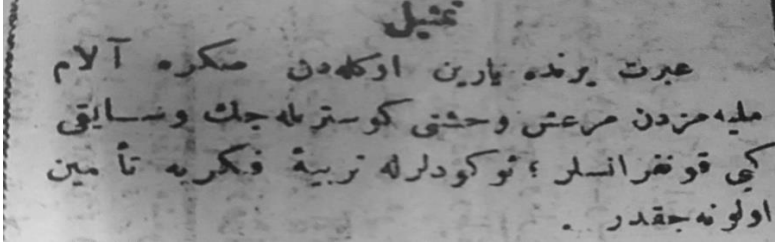 تمثيل
عبرت يرنده يارين اوكله‌دن صكره آلام
مليه‌مزدن مرعش وحشتى كوستريله‌جك و سابقى
كبى قونفرانسلر ؛ توكودلرله تربيۀ فكريه تأمين
اولونه‌جقدر .